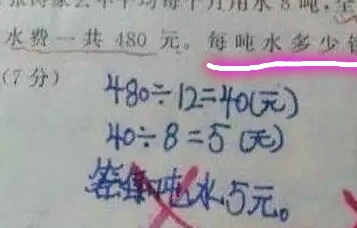 年平均每个月用水8吨,全
水费一共480元。每吨水多少
(7分)
480÷12=40(元)
40÷8=5(元)
答每吨水5元。